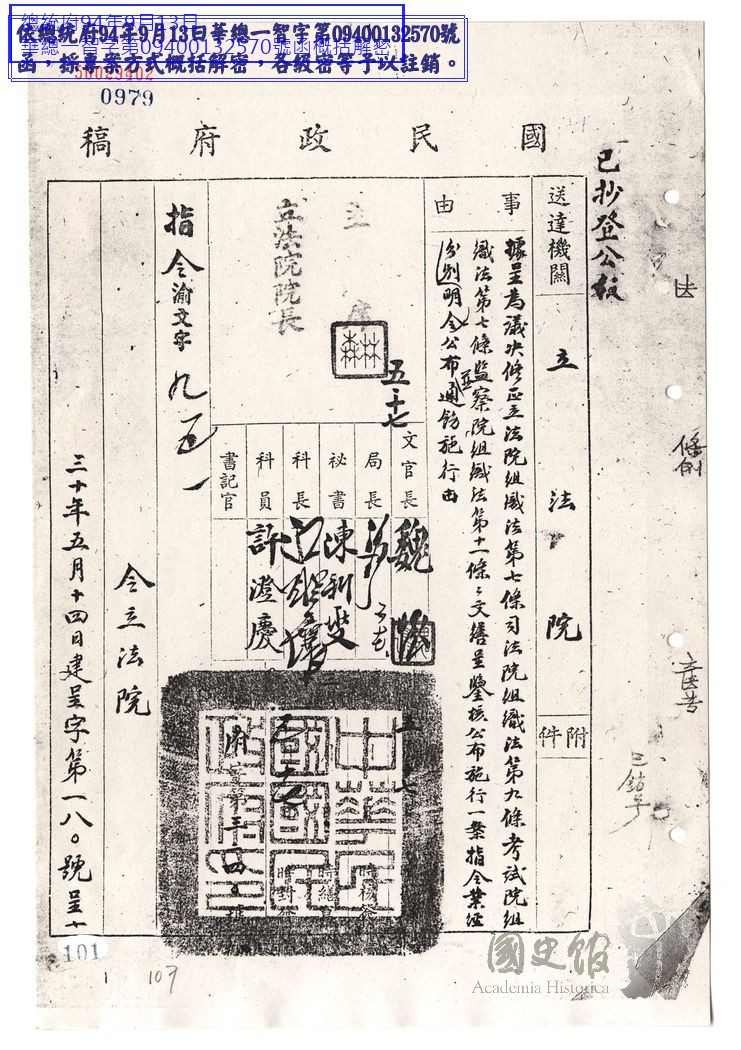 總統府94年9月13日
華總一智字第09400132570號函概括解密
依總統府94年9月13日華總一智字第09400132570號
函，採專案方式概括解密，各級密等予以註銷。
50029402
0979
國民政府稿
已抄登公報
送達機關
立法院
附件
事由
據呈為議決修正立法院組織法第七條司法院組織法第九條考試院組
織法第七條監察院組織法第十一條之文繕呈鑒核公布施行一案指令業經
分別明令公布並通飭施行由
文官長
魏
局長
祕書
陳
科長
科員
許澄慶
書記官
主席
林森
立法院院長
五、十七
中華民國國民政府印
指令渝文字
九五一
令立法院
三十年五月十四日建呈字第一八〇號呈一
101
107
法
條例
國史館
Academia Historica